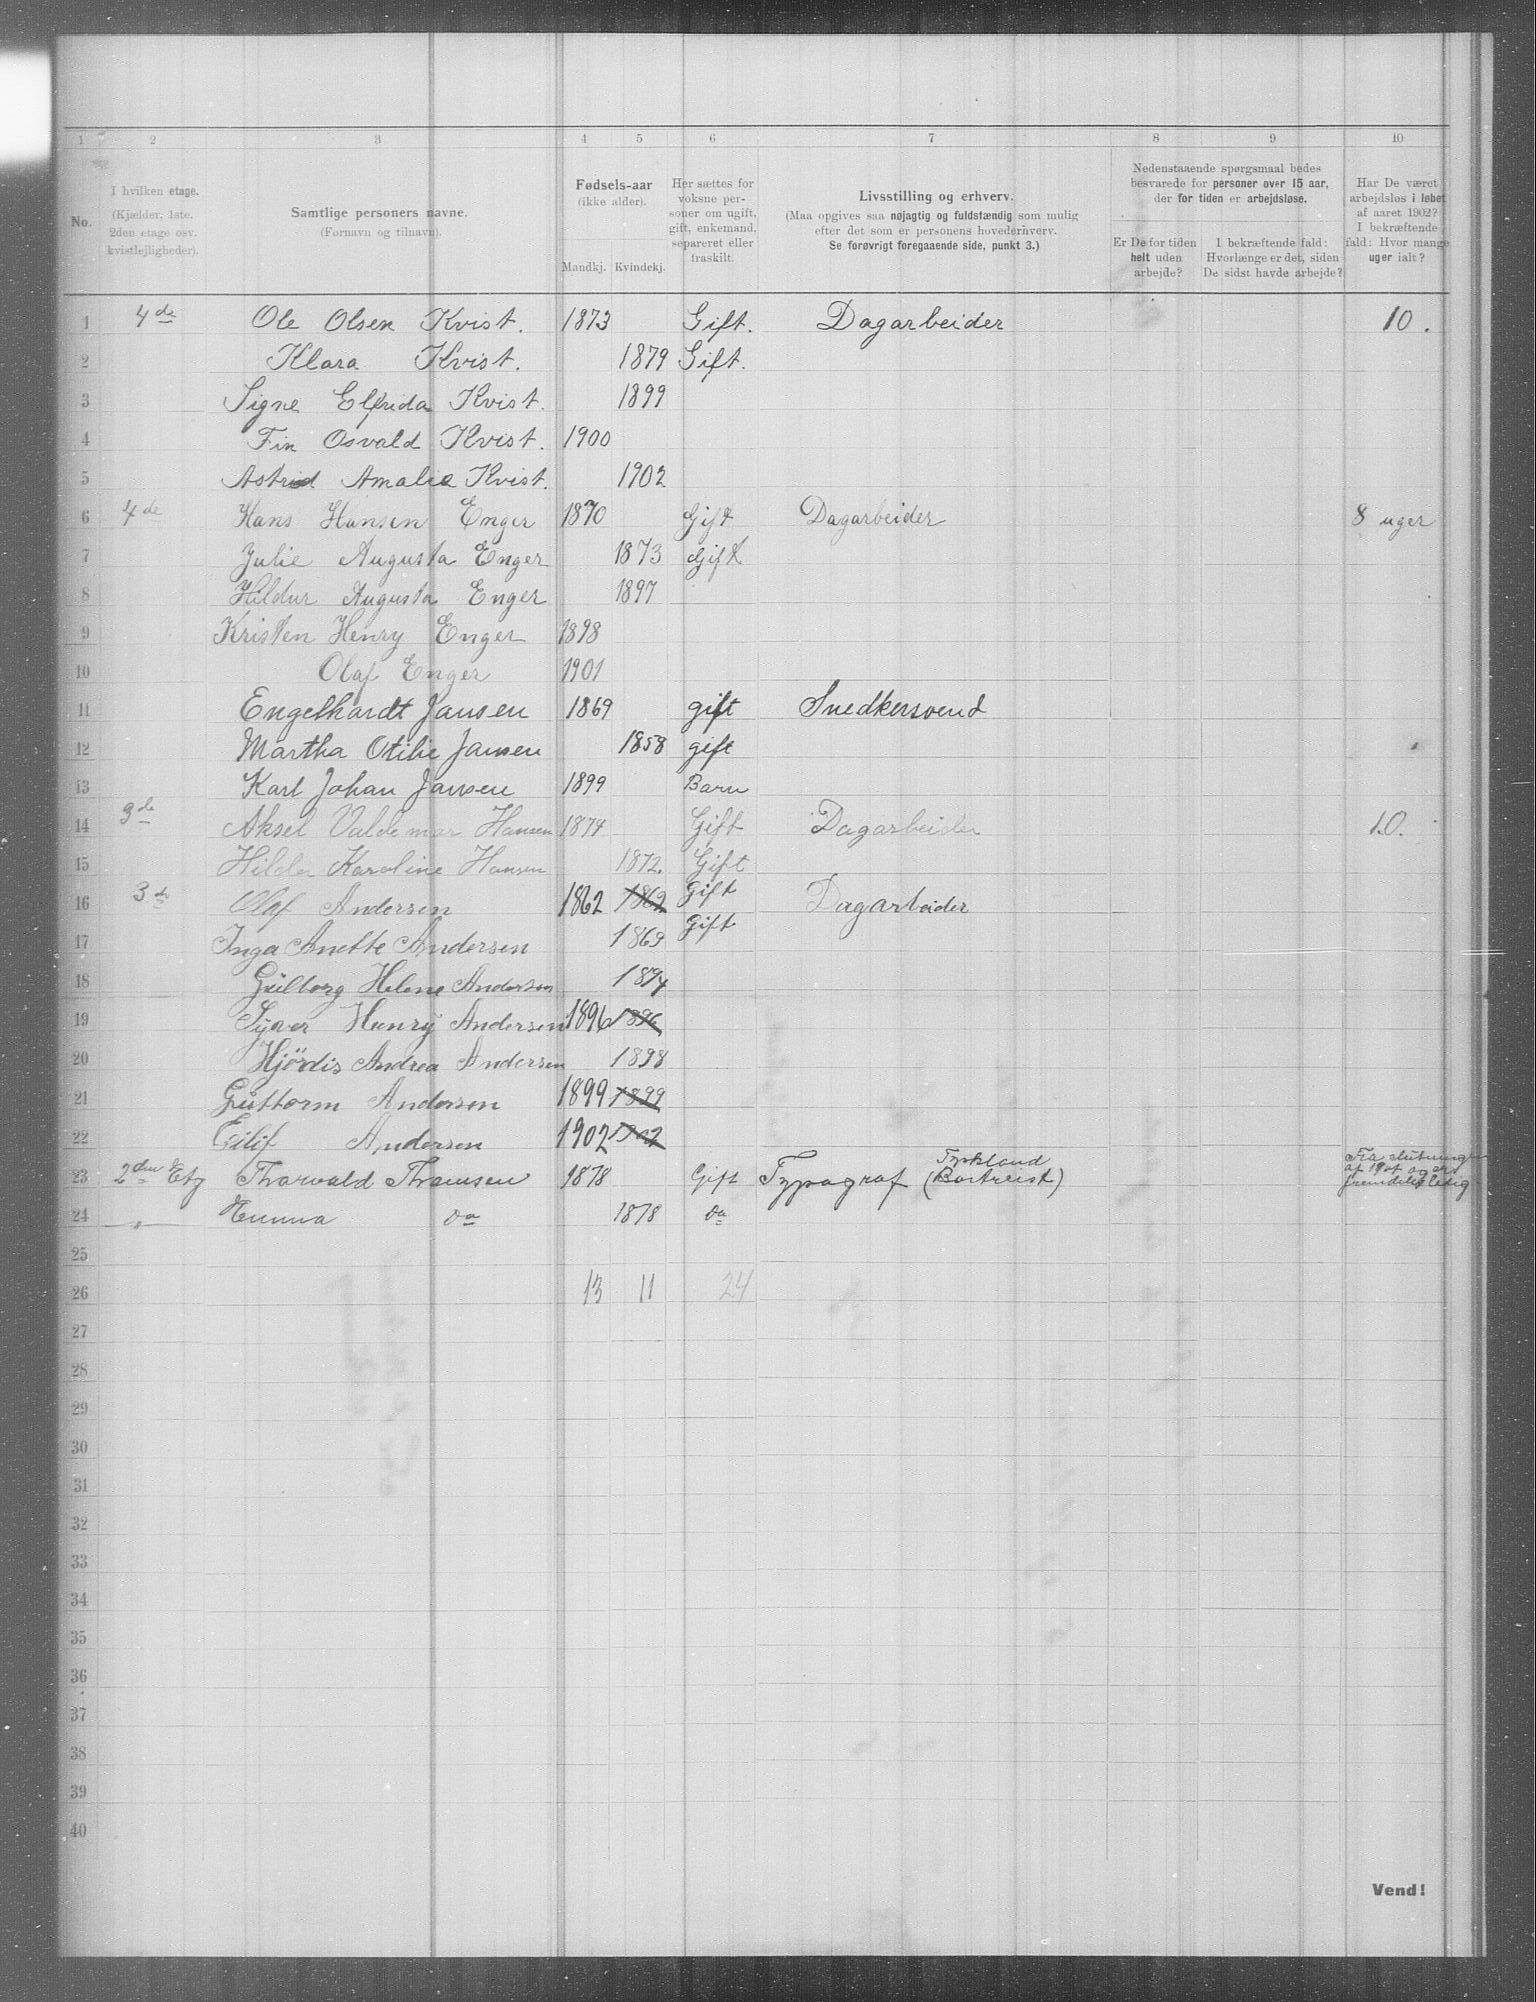 1 2 3 4 5 6 7 8 9 10
No.
I hvilken etage.
(Kjælder, 1ste.
2den etage osv.
kvistlejligheder).
Samtlige personers navne.
(Fornavn og tilnavn).
Fødsels-aar
(ikke alder).
Mandkj. Kvindekj.
Her sættes for
voksne per-
soner om ugift,
gift, enkemand,
separeret eller
fraskilt.
Livsstilling og erhverv.
(Maa opgives saa nøjagtig og fuldstændig som mulig
efter det som er personens hovederhverv.
Se forøvrigt foregaaende side, punkt 3.)
Nedenstaaende spørgsmaal bedes
besvarede for personer over 15 aar,
der for tiden er arbejdsløse.
Er De for tiden
helt uden
arbejde?
I bekræftende fald:
Hvorlænge er det, siden
De sidst havde arbejde?
Har De været
arbejdsløs i løbet
af aaret 1902?
I bekræftende
fald: Hvor mange
uger ialt?
1 4de Ole Olsen Kvist. 1873 Gift. Dagarbeider 10.
2 Klara Kvist. 1879 Gift.
3 Signe Elfrida Kvist. 1899
4 Fin Osvald Kvist. 1900
5 Astrid Amalie Kvist. 1902
6 4de Hans Hansen Enger 1870 Gift Dagarbeider 8 uger
7 Julie Augusta Enger 1873 Gift
8 Hildur Augusta Enger 1897
9 Kristen Henry Enger 1898
10 Olaf Enger 1901
11 Engelhardt Jansen 1869 gift Snedkersvend
12 Martha Otilie Jansen 1858 gift
13 Karl Johan Jansen 1899 Barn
14 3de Aksel Valdemar Hansen 1874 Gift Dagarbeider 10.
15 Hilda Karoline Hansen 1872. Gift
16 3de Olaf Andersen 1862 1862 Gift Dagarbeider
17 Inga Anette Andersen 1869 Gift
18 Gulborg Helene Andersen 1894
19 Syver Henry Andersen 1896 1896
20 Hjördis Andrea Andersen 1898
21 Guttorm Andersen 1899 1899
22 Eilif Andersen 1902 1902
23 2den Etg Thorvald Thomsen 1878 Gift Typograf (Bortreist) Tyskland Fra slutningen af 1901 og er fremdeles ledig
24 " Emma do 1878 do
25
26 13 11 24
27
28
29
30
31
32
33
34
35
36
37
38
39
40
Vend!